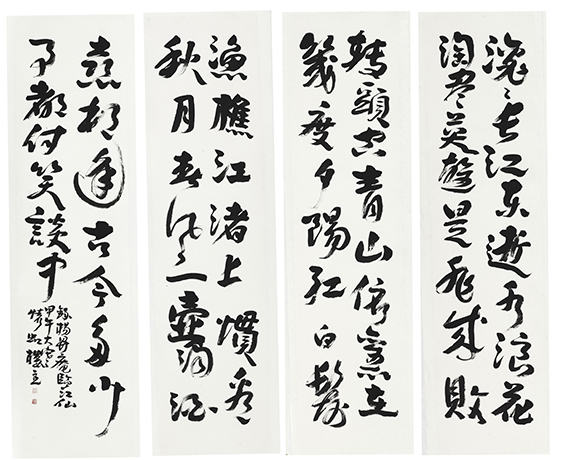 滾滾長江東逝水浪花
淘盡英雄是非成敗
轉頭空青山依舊在
幾度夕陽紅白髮
漁樵江渚上慣看
秋月春风一壺濁酒
喜相逢古今多少
事都付笑談中
錄楊升庵臨江仙
甲午大雪